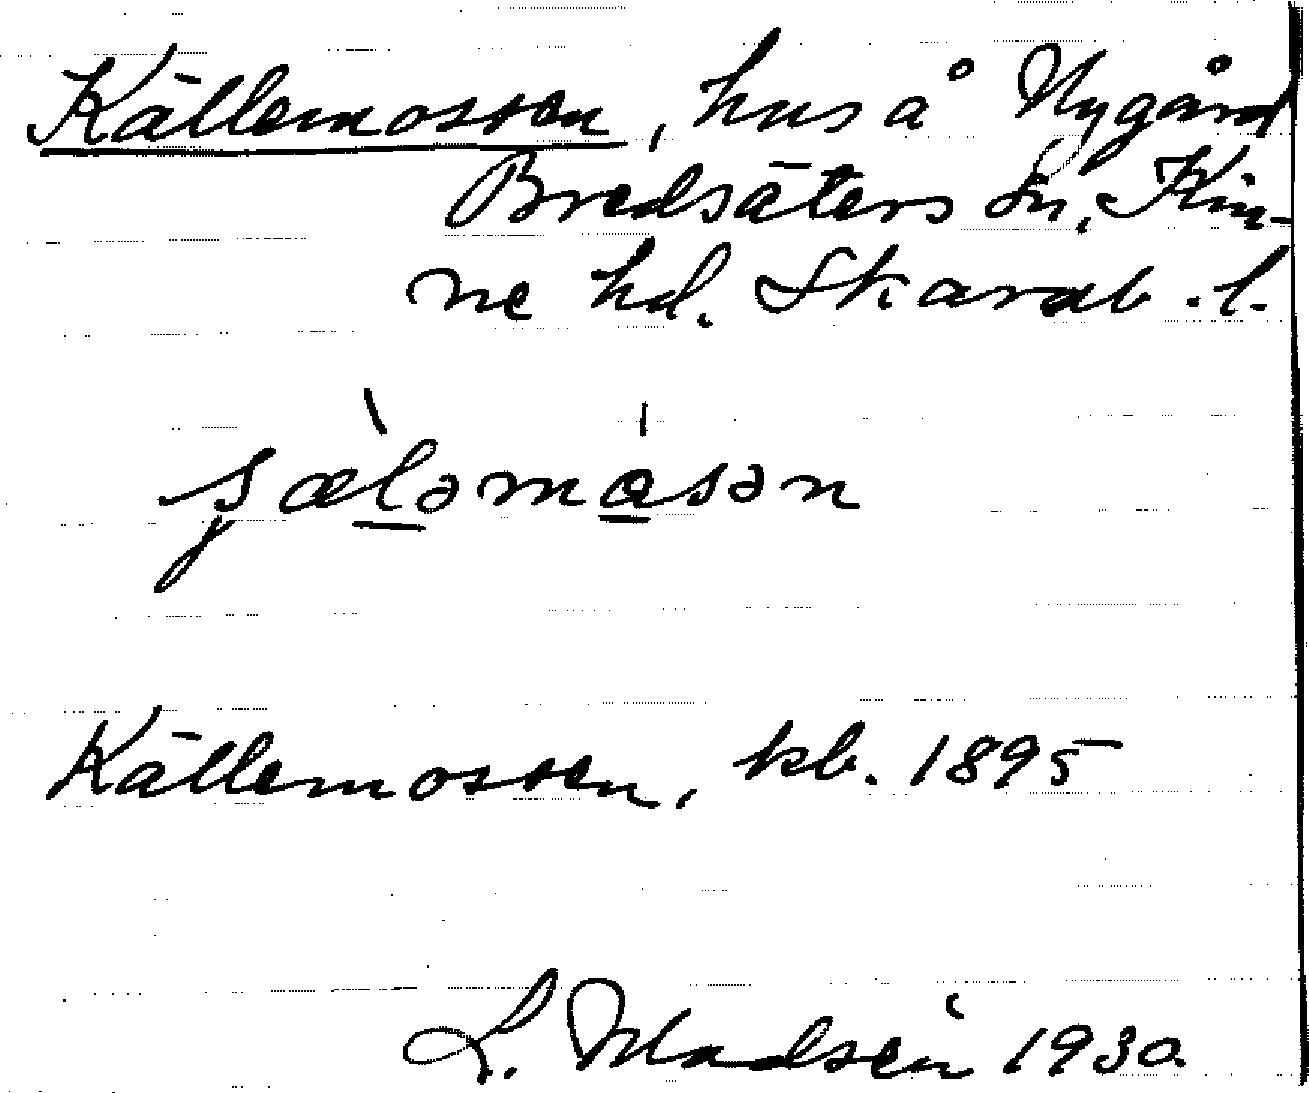 Källemossen, hus å Nygård
Bredsäters sn, Kin-
ne hd. Skarab. l.
Källemossen, kb. 1895
L. Madsén 1930